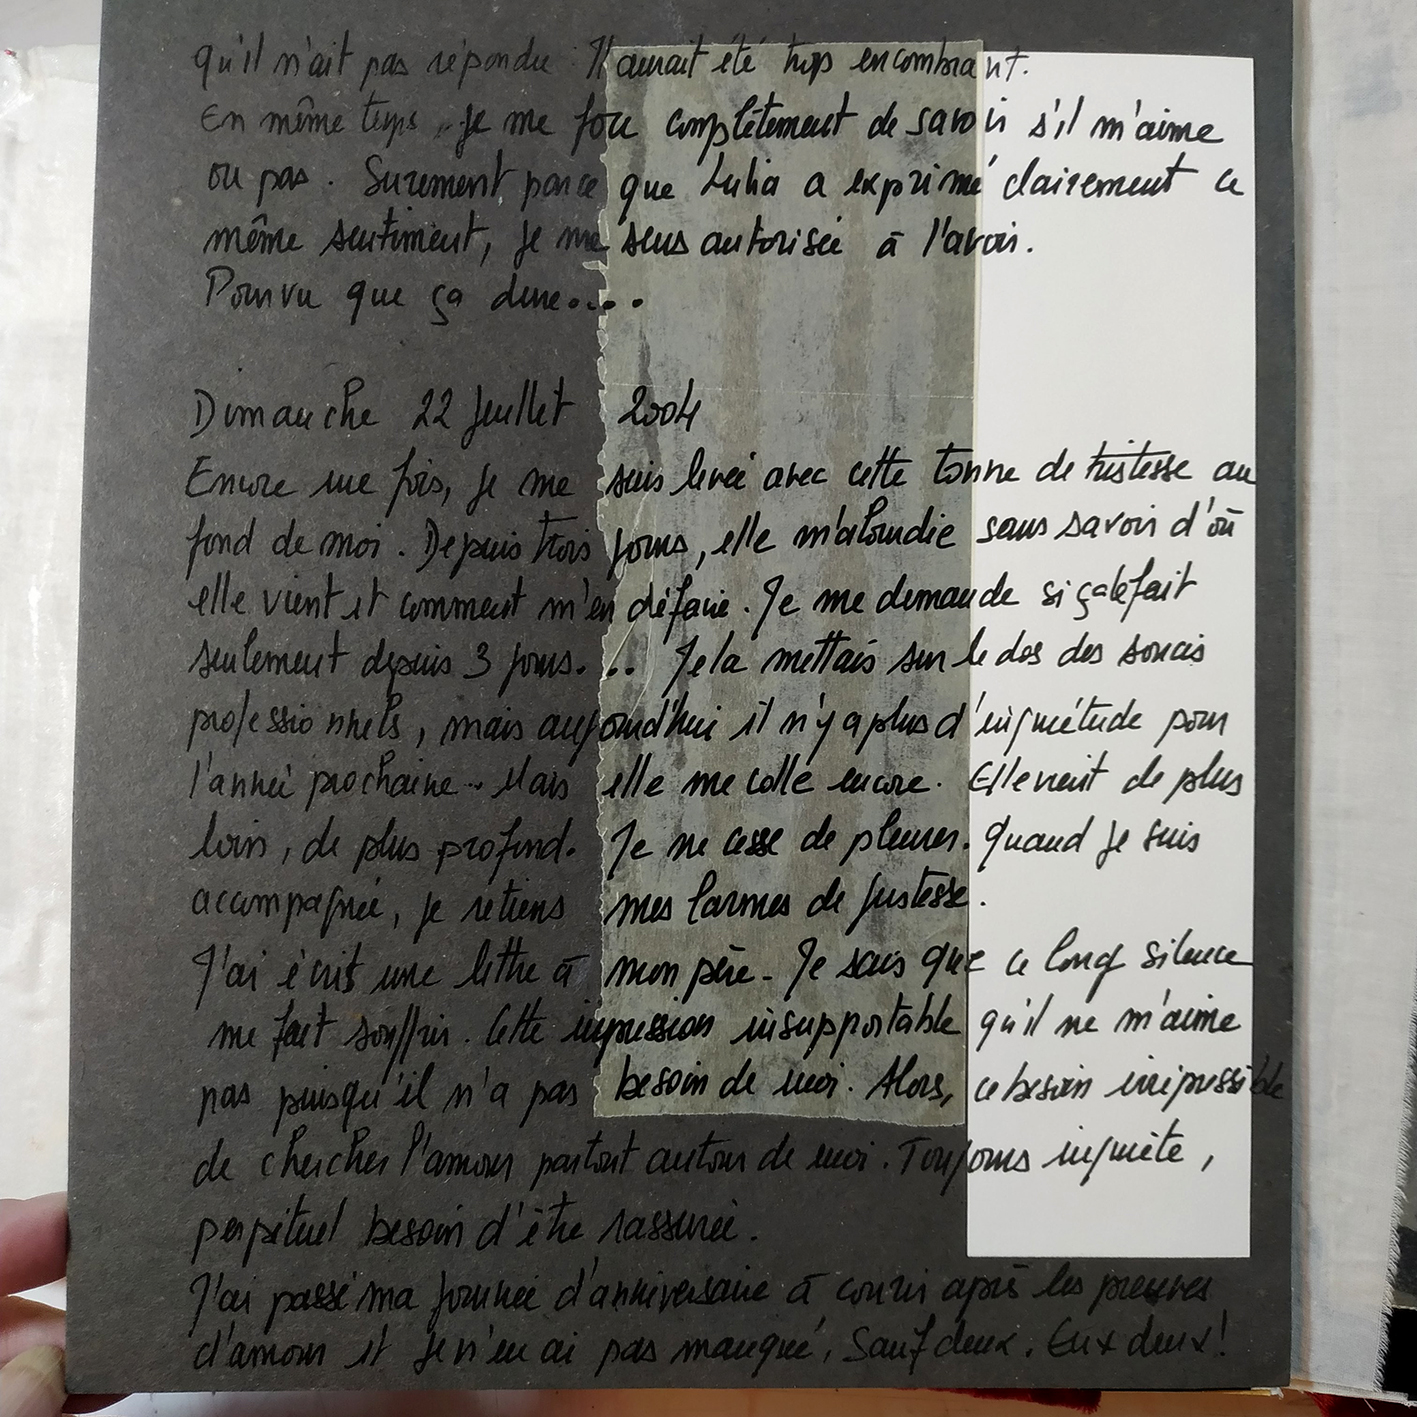 qu'il n'ait pas répondu. Il aurait été trop encombrant.
En même temps, je me fou complètement de savoir s'il m'aime
ou pas. Surement parce que Lulia a exprimé clairement ce
même sentiment, je me sens autorisée à l'avoir.
Pourvu que ça dure....
Dimanche 22 Juillet 2004
Encore une fois, je me suis levée avec cette tonne de tristesse au
fond de moi. Depuis trois jours, elle m'alourdie sans savoir d'où
elle vient et comment m'en défaire. Je me demande si ça le fait
seulement depuis 3 jours... Je la mettais sur le dos des soucis
professionnels, mais aujourd'hui il n'y a plus d'inquiétude pour
l'année prochaine.. Mais elle me colle encore. Elle vient de plus
loin, de plus profond. Je ne cesse de pleurer. Quand je suis
accompagnée, je retiens mes larmes de justesse.
J'ai écrit une lettre à mon père. Je sais que ce long silence
me fait souffrir. Cette impression insupportable qu'il ne m'aime
pas puisqu'il n'a pas besoin de moi. Alors, ce besoin irrépressible
de chercher l'amour partout autour de moi. Toujours inquiète,
perpétuel besoin d'être rassurée.
J'ai passé ma journée d'anniversaire à courir après les preuves
d'amour et je n'en ai pas manqué, Sauf deux. Eux deux!